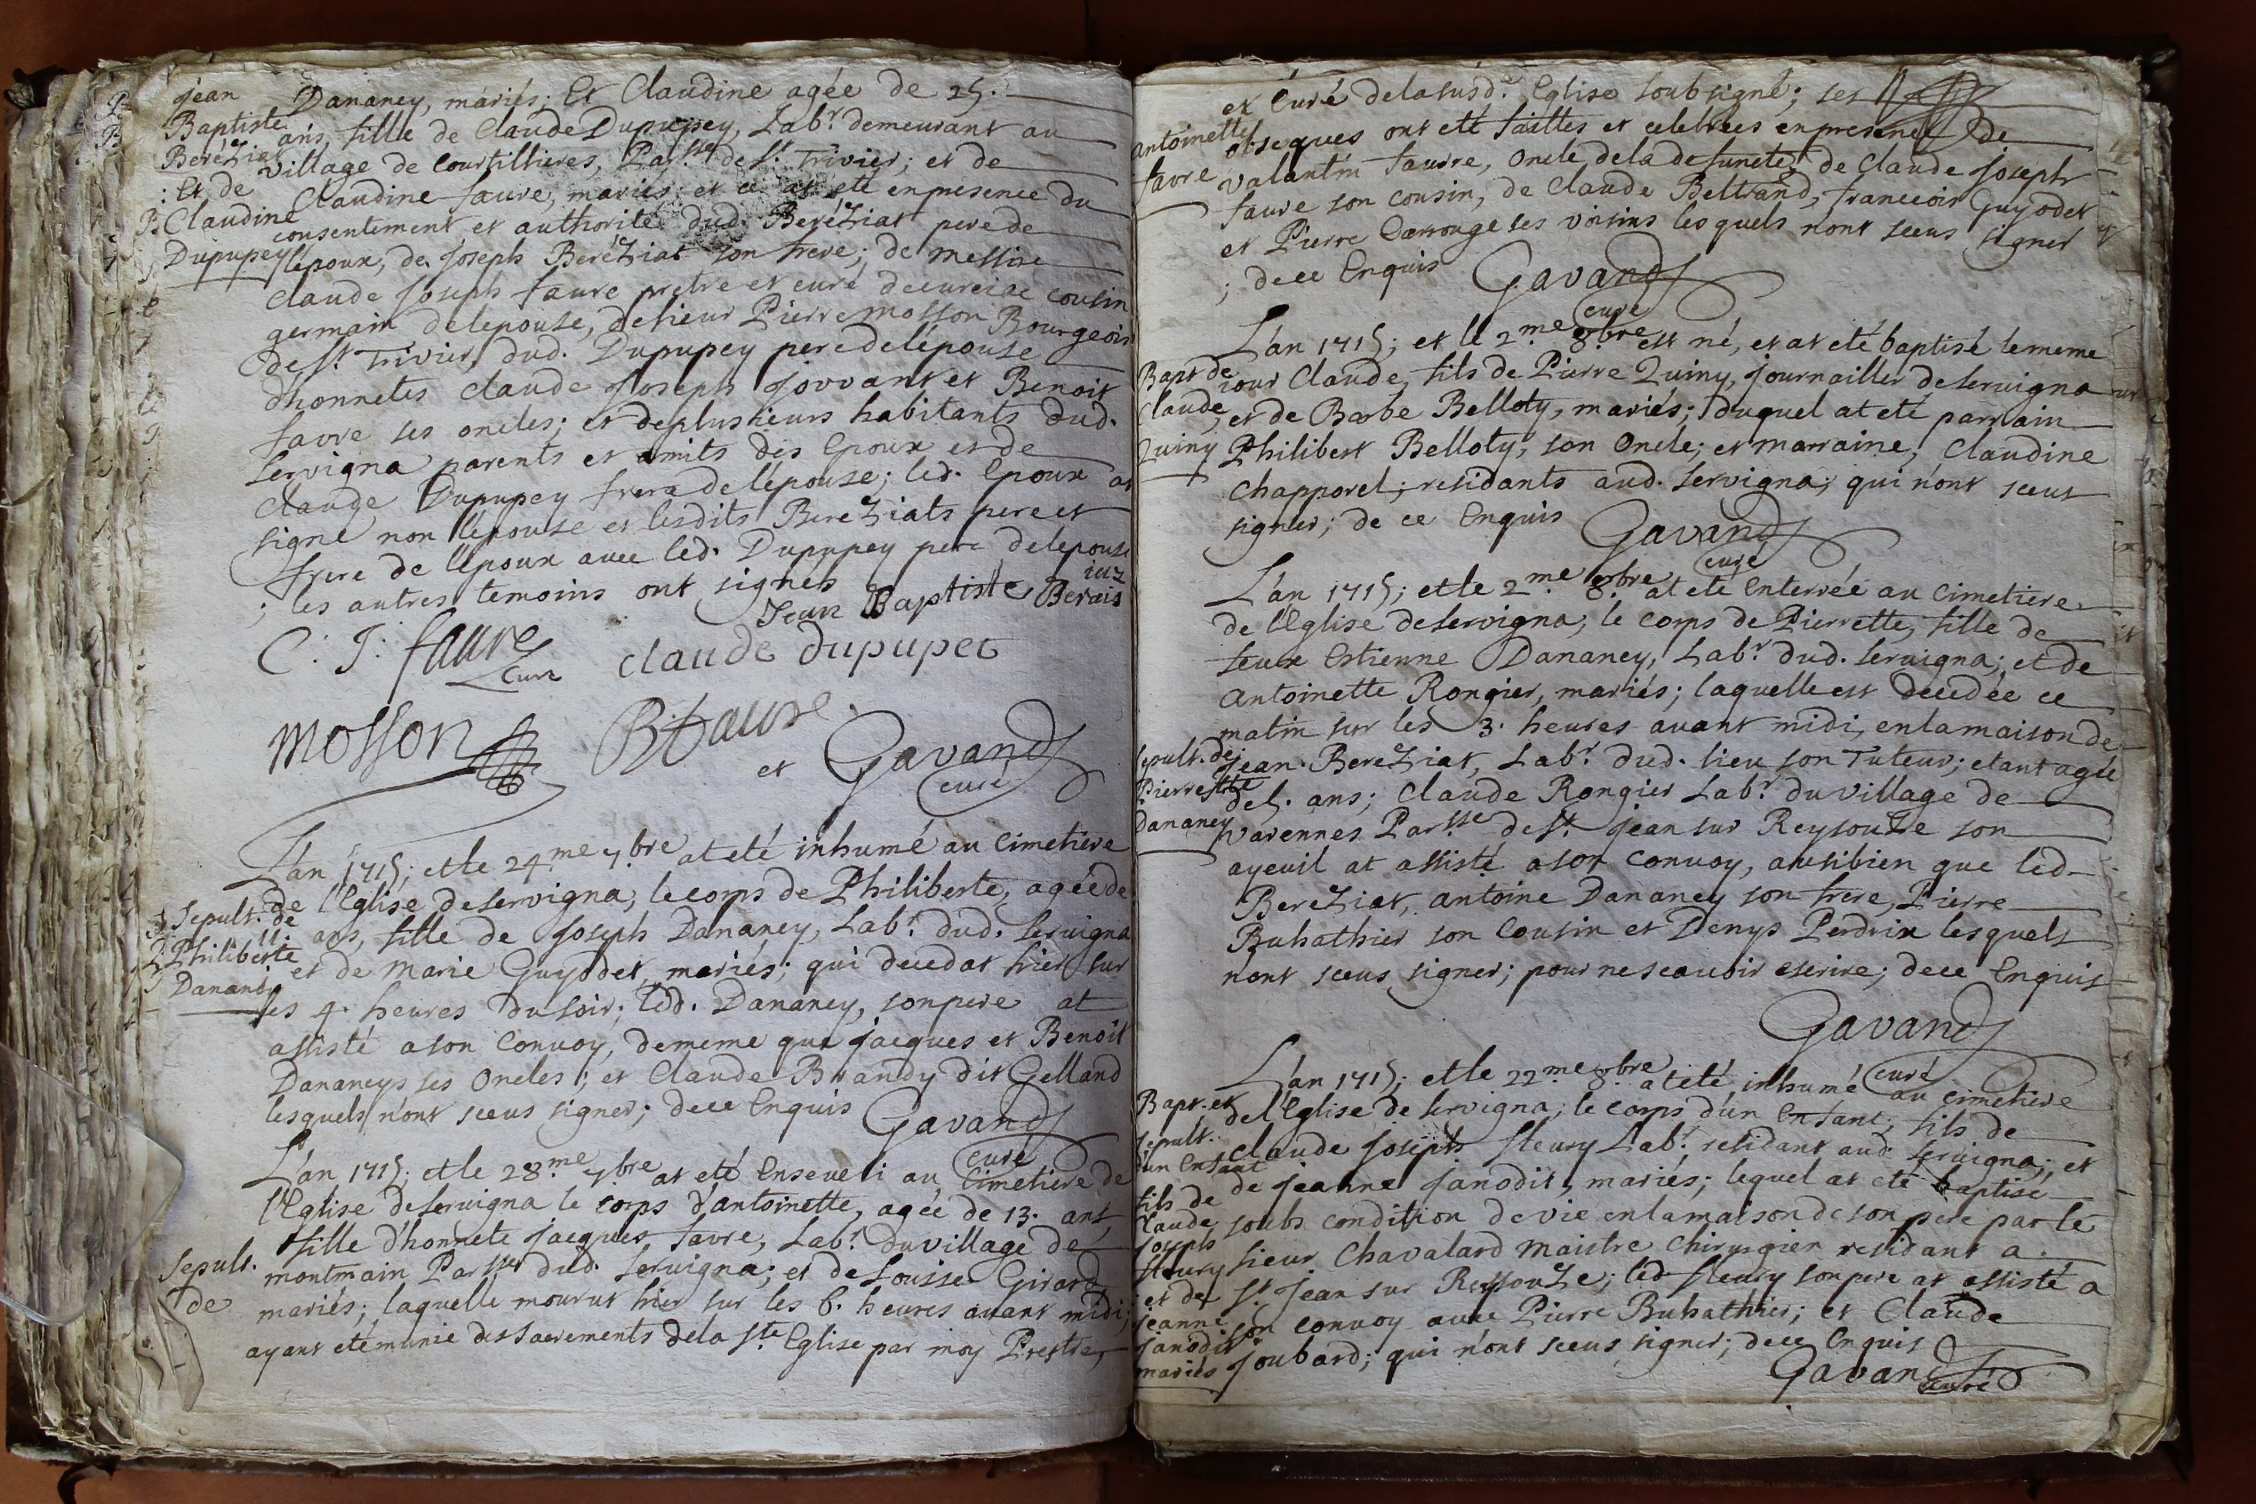 Jean
Baptiste
Beréziat
: Et de
Claudine
Dupupey
Dananey, mariés; Et Claudine agée de 25.
ans, fille de Claude Dupupey, Labr. demeurant au
village de Courtillieres, Parsse de St. Trivier; et de
Claudine faure, mariés; et ce at eté en presence du
consentement et authorité dud. Beréziat pere de
lepoux, de Joseph Beréziat son frere; de messire
Claude Joseph faure pretre et curé de curciac cousin
germain delepouse, de sieur Pierre mosson Bourgeois
de St. Trivier, dud. Dupupey pere delépouse
d'honnetes Claude Joseph Jovvant et Benoit
favre ses oncles; et deplusieurs habitants dud.
Servigna parents et amits des Epoux et de
Claude Dupupey frere de l'épouse; led. Epoux at
signé non l'épouse et lesdits Bereziats pere et
frere de l'époux avec led. Dupupey pere delepouse
; les autres temoins ont signés
Jean Baptiste Berais
iuz
C. J. faure
Curé
claude dupupet
mosson
B faure
et Gavand
curé
L'an 1715; et le 24.me 7.bre at eté inhumé au Cimetiere
de l'Eglise de servigna, le corps de Philiberte, agée de
11. ans, fille de Joseph Dananey, Labr. dud. Servigna
et de Marie Guyodet, mariés; qui decedat hier sur
les 4. heures du soir; led. Dananey, son pere at
assisté a son Convoy, dememe que Jacques et Benoit
Dananeys ses Oncles; et Claude Brandy dit Gelland
lesquels n'ont sceus signer; de ce Enquis
Gavand
curé
Sepult. de
Philiberte
Dananey
L'an 1715; et le 28.me 7.bre at eté Enseveli au Cimetiere de
l'Eglise de servigna le corps d'antoinette, agée de 13. ans
fille d'honnete Jacques favre, Labr. du village de
montmain Parsse dud. Servigna; et de Louise Girard
mariés; laquelle mourut hier sur les 6. heures avant midi;
ayant eté munie des sacrements dela Ste. Eglise par moy Prestre
Sepult.
de
et Curé dela susd. Eglise soubsigné; ses
obseques ont eté faittes et celebrées enpresence de
valantin faure, Oncle dela defuncte, de Claude Joseph
faure son cousin, de Claude Beltrand, francois Guyodet
et Pierre Darrouge ses voisins lesquels n'ont sceus signer
; de ce Enquis
Gavand
curé
antoinette
favre
L'an 1715; et le 2.me 8.bre est né, et at eté baptisé le meme
jour Claude, fils de Pierre Quiny, journailler de servigna
et de Barbe Belloty, mariés; duquel at eté parrain
Philibert Belloty, son Oncle; et marraine, Claudine
Chapporel; residants aud. Servigna; qui n'ont sceus
signer; de ce Enquis
Gavand
curé
Bapt de
Claude
Quiny
L'an 1715; et le 2.me 8.bre at eté Enterrée au Cimetiere
de l'Eglise de servigna, le corps de Pierrette, fille de
feux Estienne Dananey, Labr. dud. Servigna; et de
Antoinette Rongier, mariés; laquelle est decedée ce
matin sur les 3. heures avant midi, en la maison de
Jean Bereziat, Labr. dud. lieu son Tuteur; etant agée
de 5. ans; Claude Rongier Labr. du village de
Varennes Parsse de St. Jean sur Reysouze son
ayeuil at assisté a son Convoy, ausibien que led.
Bereziat, antoine Dananey son frere, Pierre
Buhathier son Cousin et Denys Perdrix lesquels
n'ont sceus signer; pour ne scavoir escrire; de ce Enquis
Gavand
curé
Sepult. de
Pierrette
Dananey
L'an 1715; et le 22.me 8.bre at eté inhumé au cimetiere
de l'Eglise de servigna; le corps d'un Enfant, fils de
Claude Joseph fleury Labr. residant aud. Servigna; et
de Jeanne Janodit, mariés; lequel at eté baptisé
soubs condition de vie en la maison de son pere par le
sieur Chavalard Maistre Chirurgien residant a
St. Jean sur Reissouze; led. fleury son pere at assisté a
son convoy avec Pierre Buhathier; et Claude
Joubard; qui n'ont sceus signer; de ce Enquis
Gavand
curé
Bapt. et
sepult.
d'un Enfant
fils de
Claude
Joseph
fleury
et de
Jeanne
Janodit
mariés